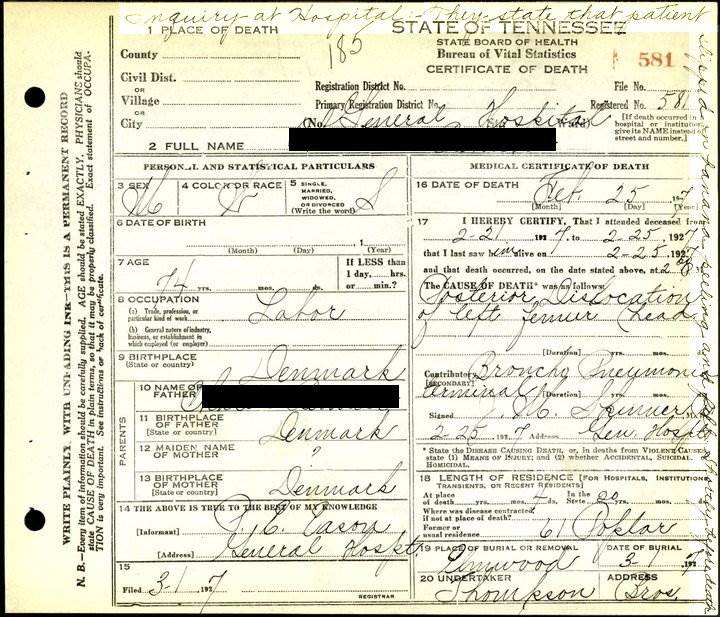 Inquiry at Hospital - They state that patient
slipped on banana peeling and fell thereby
1 PLACE OF DEATH
County
Civil Dist.
OR
Village
OR
City
185
STATE OF TENNESSEE
STATE BOARD OF HEALTH
Bureau of Vital Statistics
CERTIFICATE OF DEATH
581
Registration District No.
File No.
Primary Registration District No.
Registered No. 581
(No. General Hospital Ward)
[If death occurred in
hospital or institution
give its NAME instead of
street and number.]
2 FULL NAME
WRITE PLAINLY WITH UNFADING INK—THIS IS A PERMANENT RECORD
N. B.—Every item of Information should be carefully supplied. AGE should be stated EXACTLY. PHYSICIANS should
state CAUSE OF DEATH in plain terms, so that it may be properly classified. Exact statement of OCCUPA-
TION is very important. See instructions on back of certificate.
PERSONAL AND STATISTICAL PARTICULARS
3 SEX
M
4 COLOR OR RACE
W
5 SINGLE,
MARRIED,
WIDOWED,
OR DIVORCED
(Write the word)
S
6 DATE OF BIRTH
(Month) (Day) (Year)
, 1
7 AGE
74 yrs. mos. ds.
If LESS than
1 day, hrs.
or min.?
8 OCCUPATION
(a) Trade, profession, or
particular kind of work
Labor
(b) General nature of industry,
business, or establishment in
which employed (or employer)
9 BIRTHPLACE
(State or country)
Denmark
PARENTS
10 NAME OF
FATHER
11 BIRTHPLACE
OF FATHER
(State or country)
Denmark
12 MAIDEN NAME
OF MOTHER
"
13 BIRTHPLACE
OF MOTHER
(State or country)
Denmark
14 THE ABOVE IS TRUE TO THE BEST OF MY KNOWLEDGE
[Informant] Cason
[Address] General Hospt.
15
Filed 3-1 , 1927
REGISTRAR
MEDICAL CERTIFICATE OF DEATH
16 DATE OF DEATH
Feb. 25 1927
[Month] [Day] [Year]
17 I HEREBY CERTIFY, That I attended deceased from
2-21 1927 to 2-25, 1927
that I last saw him alive on 2-25, 1927
and that death occurred, on the date stated above, at 2
The CAUSE OF DEATH* was as follows:
Posterior Dislocation
of left femur (head
[Duration] yrs. mos. ds.
Contributory Broncho Pneumonia
[SECONDARY]
terminal [Duration] yrs. mos. ds.
Signed
2-25 1927 Address Gen. Hospt
* State the DISEASE CAUSING DEATH, or, in deaths from VIOLENT CAUSES
state (1) MEANS OF INJURY; and (2) whether ACCIDENTAL, SUICIDAL
HOMICIDAL.
18 LENGTH OF RESIDENCE [FOR HOSPITALS, INSTITUTIONS
TRANSIENTS, OR RECENT RESIDENTS]
At place
of death yrs. mos. 4 ds.
In the
State 20 yrs. mos. ds.
Where was disease contracted,
if not at place of death?
Former or
usual residence
61 Poplar
19 PLACE OF BURIAL OR REMOVAL
Elmwood
DATE OF BURIAL
3-1 1927
20 UNDERTAKER
Thompson Bros.
ADDRESS